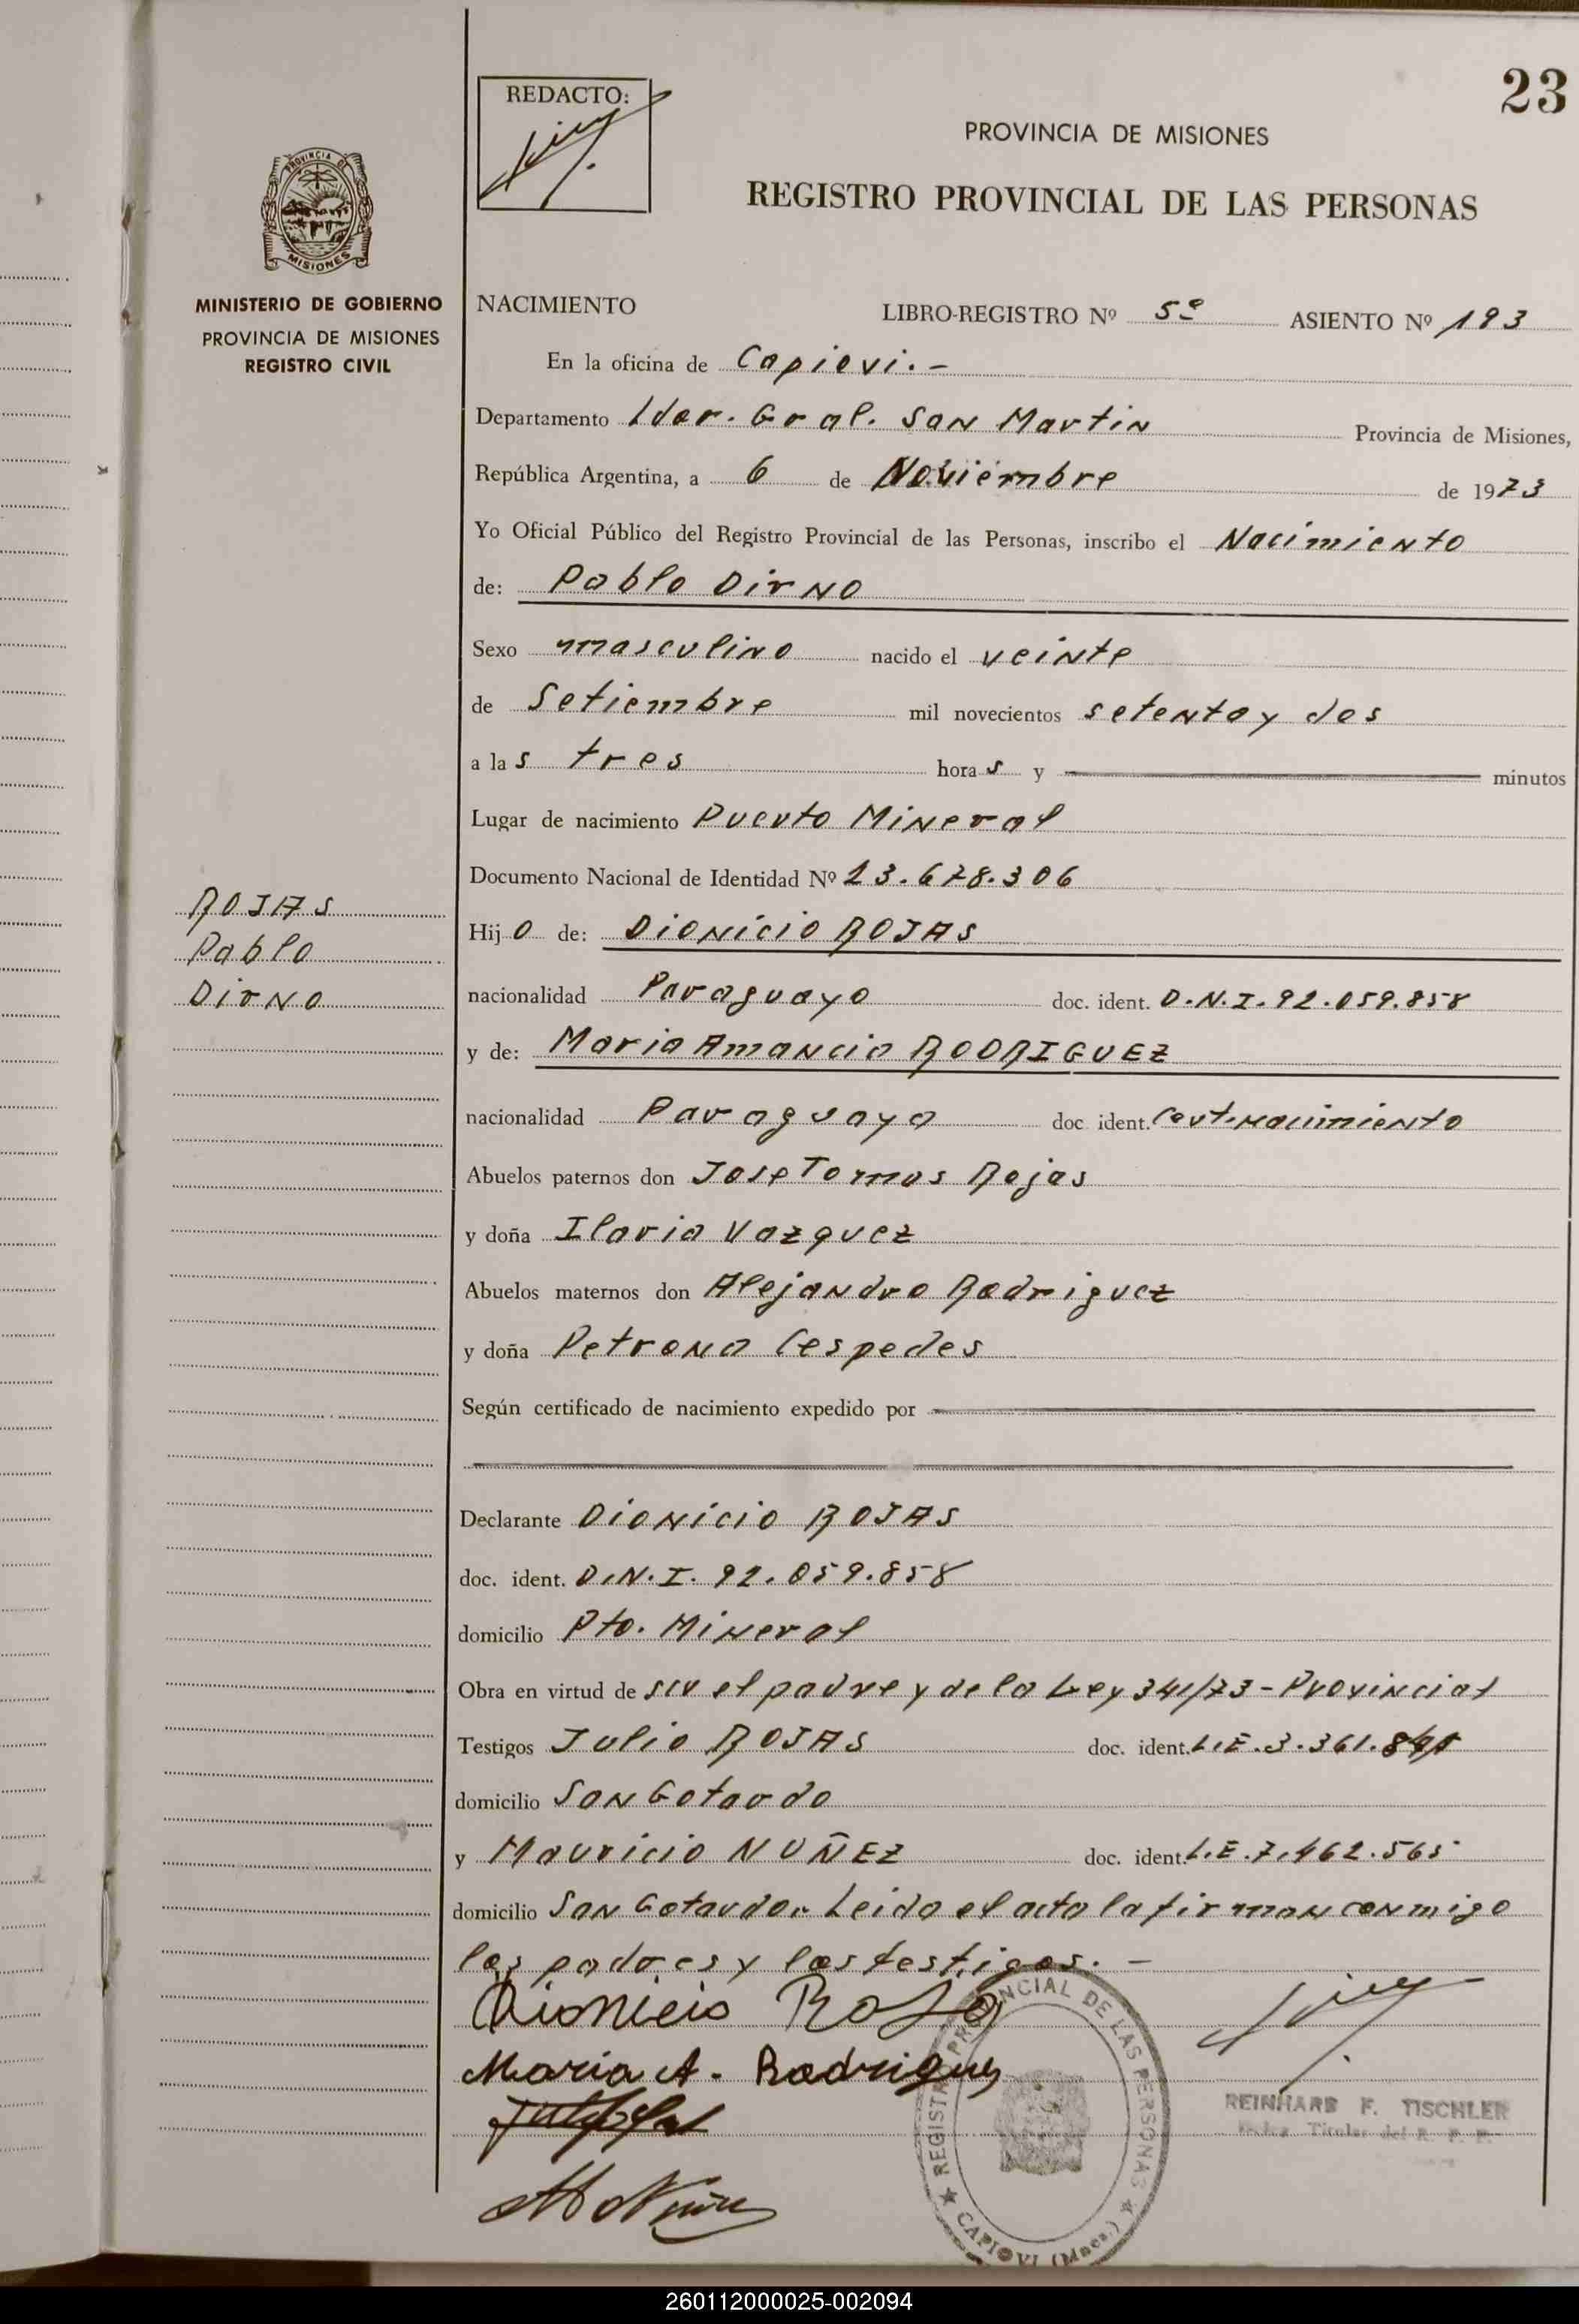 23
REDACTO:
PROVINCIA DE MISIONES
REGISTRO PROVINCIAL DE LAS PERSONAS
PROVINCIA DE
MISIONES
MINISTERIO DE GOBIERNO
PROVINCIA DE MISIONES
REGISTRO CIVIL
NACIMIENTO LIBRO-REGISTRO Nº 5º ASIENTO Nº 193
En la oficina de Capiovi.-
Departamento Lder. Gral. San Martin Provincia de Misiones,
República Argentina, a 6 de Noviembre de 1973
Yo Oficial Público del Registro Provincial de las Personas, inscribo el Nacimiento
de: Pablo Dirno
Sexo masculino nacido el veinte
de Setiembre mil novecientos setenta y dos
a las tres horas y minutos
Lugar de nacimiento Puerto Mineral
Documento Nacional de Identidad Nº 23.678.306
ROJAS
Pablo
Dirno
Hijo de: Dionicio ROJAS
nacionalidad Paraguayo doc. ident. D.N.I. 92.059.858
y de: Maria Amancia RODRIGUEZ
nacionalidad Paraguaya doc. ident. Cert. nacimiento
Abuelos paternos don Jose Tomas Rojas
y doña Ilaria Vazquez
Abuelos maternos don Alejandro Rodriguez
y doña Petrona Cespedes
Según certificado de nacimiento expedido por
Declarante Dionicio ROJAS
doc. ident. D.N.I. 92.059.858
domicilio Pto. Mineral
Obra en virtud de ser el padre y de la Ley 341/73-Provincial
Testigos Julio ROJAS doc. ident. L.E.3.361.
domicilio San Gotardo
y Mauricio NUÑEZ doc. ident. L.E.7.462.565
domicilio San Gotardo.. Leida el acta la firman conmigo
los padres y los testigos.-
Dionicio Rojas
Maria A. Rodrigues
REGISTRO PROVINCIAL DE LAS PERSONAS
CAPIOVI (Mnes.)
REINHARD F. TISCHLER
Titular del R. P. P.
260112000025-002094